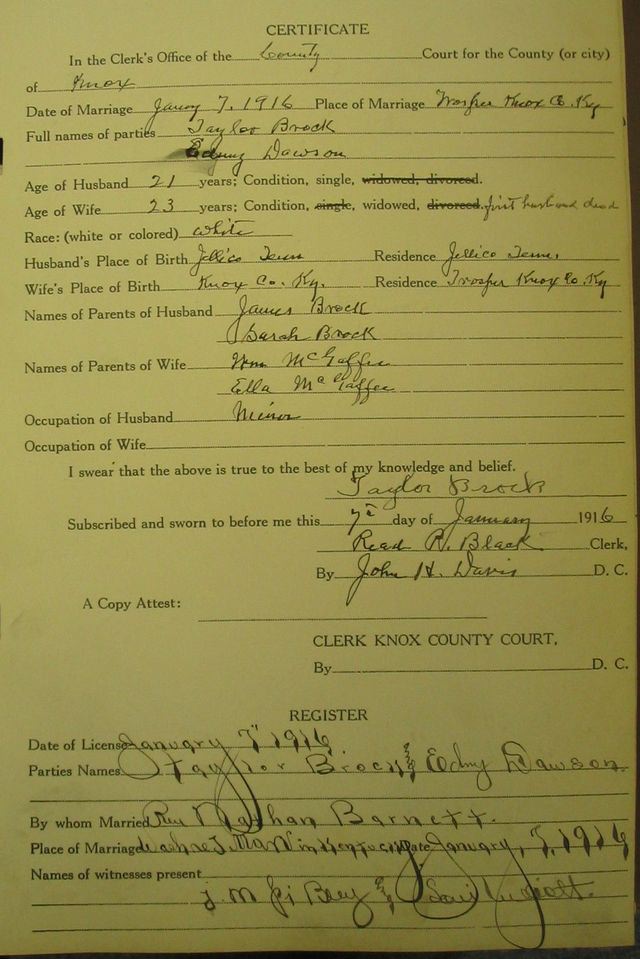 CERTIFICATE
In the Clerk's Office of the County Court for the County (or city)
of Knox
Date of Marriage Jany 7, 1916 Place of Marriage Trosper Knox Co. Ky
Full names of parties Taylor Brock
Edny Dawson
Age of Husband 21 years; Condition, single, widowed, divorced.
Age of Wife 23 years; Condition, single, widowed, divorced. first husband dead
Race: (white or colored) White
Husband's Place of Birth Jellico Tenn Residence Jellico Tenn.
Wife's Place of Birth Knox Co. Ky. Residence Trosper Knox Co Ky
Names of Parents of Husband James Brock
Sarah Brock
Names of Parents of Wife Wm McGaffee
Ella McGaffee
Occupation of Husband Minor
Occupation of Wife
I swear that the above is true to the best of my knowledge and belief.
Taylor Brock
Subscribed and sworn to before me this 7th day of January 1916
Read R. Black Clerk,
By John H. Davis D. C.
A Copy Attest:
CLERK KNOX COUNTY COURT,
By D. C.
REGISTER
Date of License January 7" 1916
Parties Names Taylor Brock & Edny Dawson
By whom Married Rev Nathan Barnett.
Place of Marriage Kentucky Date January, 7, 1916
Names of witnesses present
J. M &